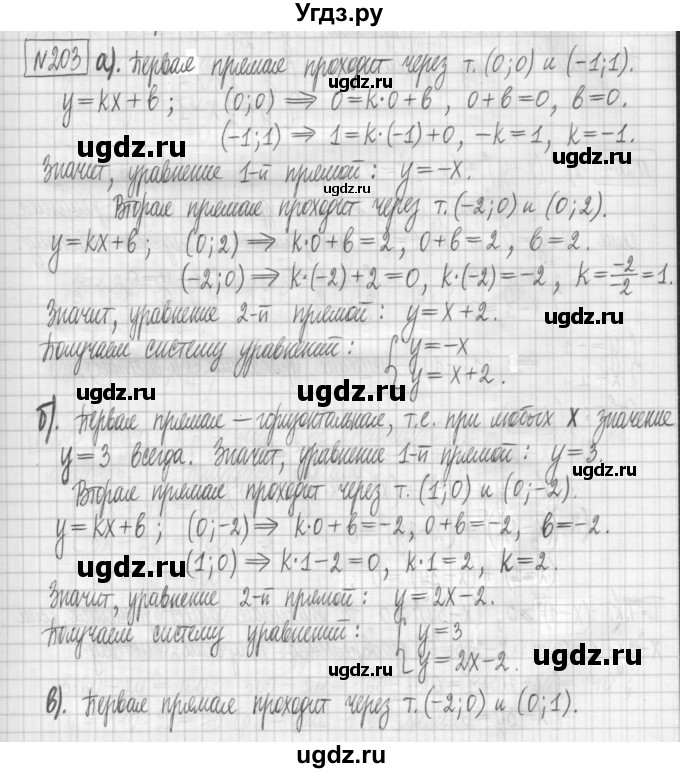 Угдз.ру
№203 а). Первая прямая проходит через т. (0;0) и (-1;1).
y=kx+b; (0;0) ⟹ 0=k·0+b, 0+b=0, b=0.
(-1;1) ⟹ 1=k·(-1)+0, -k=1, k=-1.
ugdz.ru ugdz.ru
Значит, уравнение 1-й прямой: y=-x.
ugdz.ru
Вторая прямая проходит через т. (-2;0) и (0;2).
y=kx+b; (0;2) ⟹ k·0+b=2, 0+b=2, b=2.
(-2;0) ⟹ k·(-2)+2=0, k·(-2)=-2, k=\frac{-2}{-2}=1.
Значит, уравнение 2-й прямой: y=x+2.
ugdz.ru
Получаем систему уравнений: { y=-x
y=x+2.
ugdz.ru ugdz.ru
б). Первая прямая – горизонтальная, т.е. при любых x значение
y=3 всегда. Значит, уравнение 1-й прямой: y=3.
ugdz.ru
Вторая прямая проходит через т. (1;0) и (0;-2).
y=kx+b; (0;-2) ⟹ k·0+b=-2, 0+b=-2, b=-2.
ugdz.ru (1;0) ⟹ k·1-2=0, k·1=2, k=2.
Значит, уравнение 2-й прямой: y=2x-2.
ugdz.ru
Получаем систему уравнений: { y=3
y=2x-2.
ugdz.ru ugdz.ru
в). Первая прямая проходит через т. (-2;0) и (0;1).
ugdz.ru